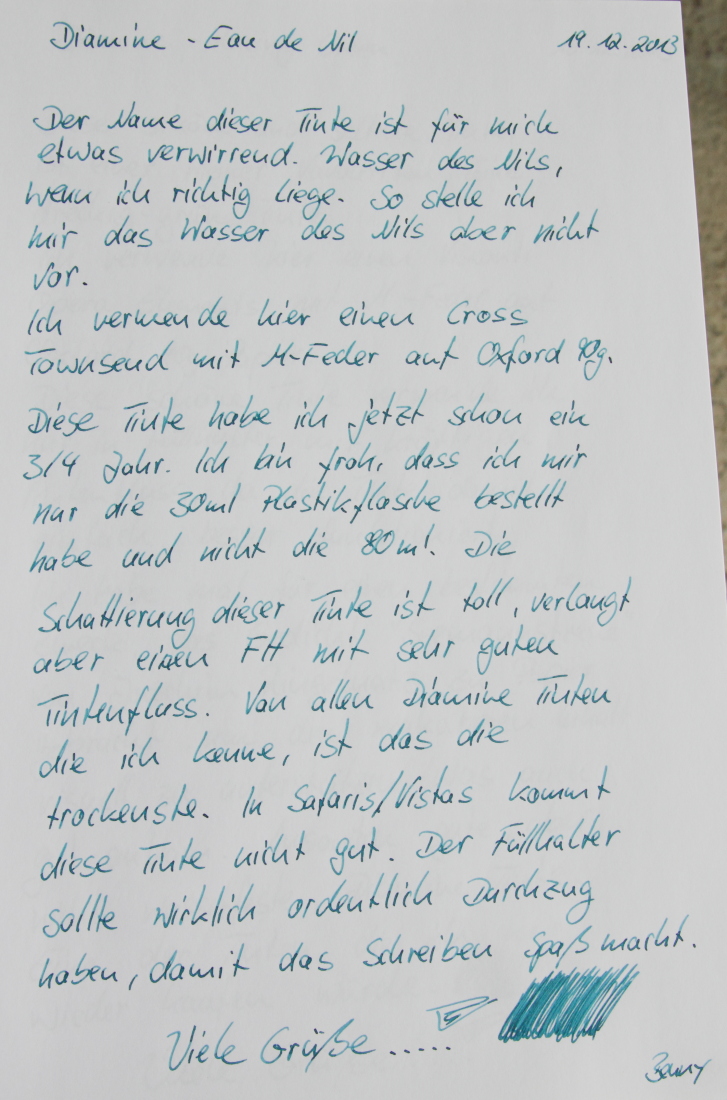 Diamine - Eau de Nil 19.12.2013
Der Name dieser Tinte ist für mich
etwas verwirrend. Wasser des Nils,
wenn ich richtig liege. So stelle ich
mir das Wasser des Nils aber nicht
vor.
Ich verwende hier einen Cross
Townsend mit M-Feder auf Oxford 90g.
Diese Tinte habe ich jetzt schon ein
3/4 Jahr. Ich bin froh, dass ich mir
nur die 30ml Plastikflasche bestellt
habe und nicht die 80ml. Die
Schattierung dieser Tinte ist toll, verlangt
aber einen FH mit sehr guten
Tintenfluss. Von allen Diamine Tinten
die ich kenne, ist das die
trockenste. In Safaris/Vistas kommt
diese Tinte nicht gut. Der Füllhalter
sollte wirklich ordentlich Durchzug
haben, damit das Schreiben Spaß macht.
Viele Grüße.....
Benny